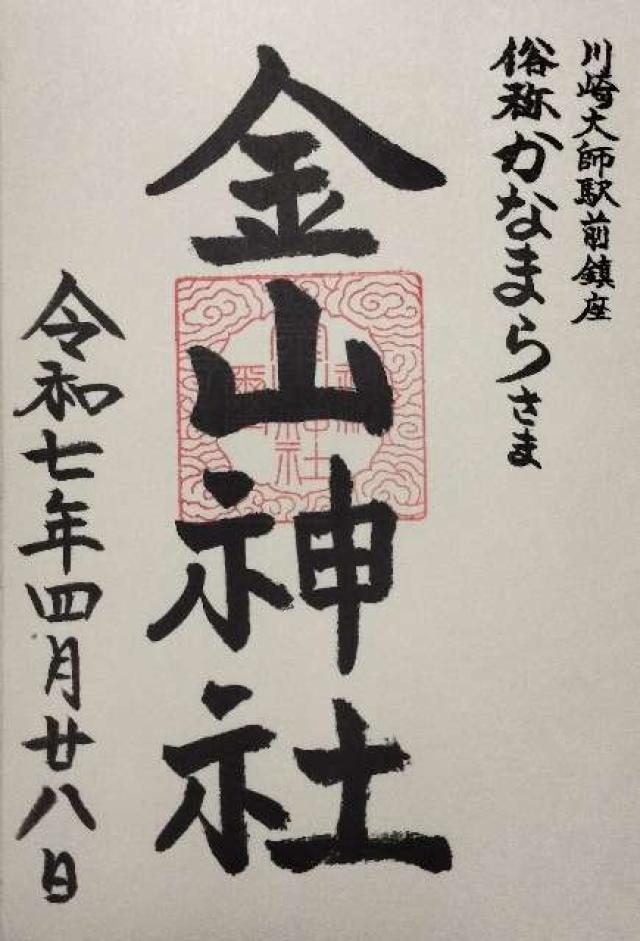 川崎大師駅前鎮座
俗称かなまらさま
金山神社
令和七年四月廿八日